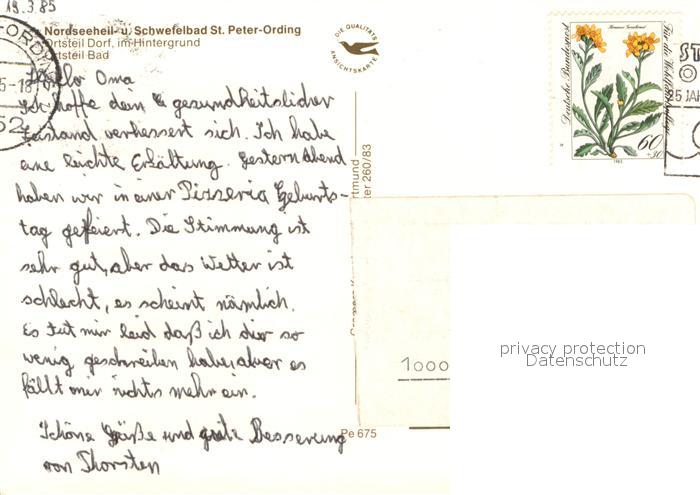 19.3.85
Nordseeheil- u. Schwefelbad St. Peter-Ording
Ortsteil Dorf, im Hintergrund
Ortsteil Bad
DIE QUALITÄTS
ANSICHTSKARTE
Deutsche Bundespost
60
+30
25 JAH
Hallo Oma
Ich hoffe dein gesundheitslicher
Zustand verbessert sich. Ich habe
eine leichte Erkältung. Gestern Abend
haben wir in einer Pizzeria Geburts-
tag gefeiert. Die Stimmung ist
sehr gut, aber das Wetter ist
schlecht, es scheint nämlich.
Es tut mir leid daß ich dir so
wenig geschreiben habe, aber es
fällt mir nichts mehr ein.
Schöne Grüße und gute Besserung
von Thorsten
260/83
Pe 675
1000
privacy protection
Datenschutz